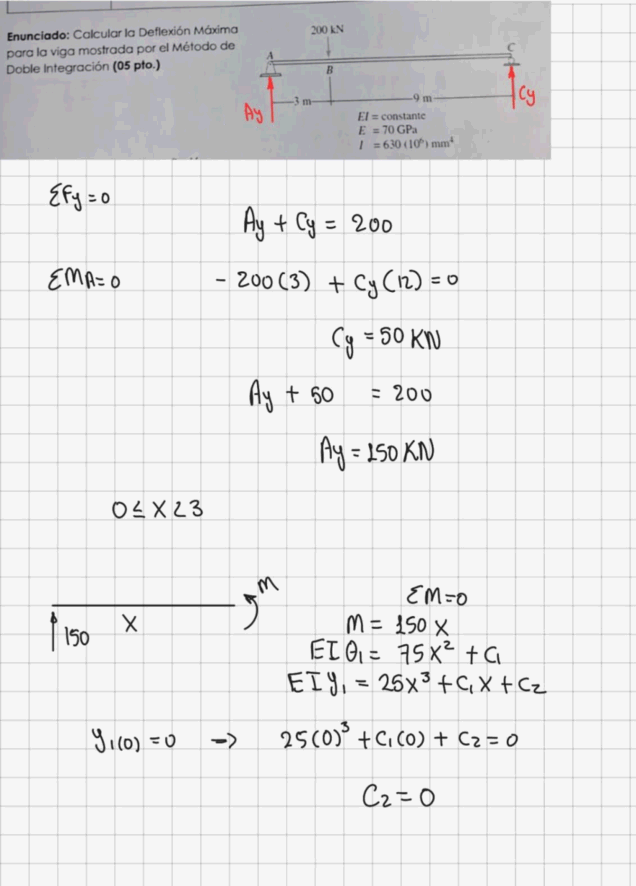 Enunciado: Calcular la Deflexión Máxima
para la viga mostrada por el Método de
Doble Integración (05 pto.)
200 kN
A
B
C
Ay
3 m
9 m
Cy
EI = constante
E = 70 GPa
I = 630 (10⁶) mm⁴
ΣFy = 0
Ay + Cy = 200
ΣMA = 0
- 200(3) + Cy(12) = 0
Cy = 50 KN
Ay + 50 = 200
Ay = 150 KN
0 ≤ X < 3
M
150
X
ΣM=0
M = 150 X
EI θ₁ = 75X² + C₁
EI y₁ = 25X³ + C₁X + C₂
y₁(0) = 0 -> 25(0)³ + C₁(0) + C₂ = 0
C₂ = 0